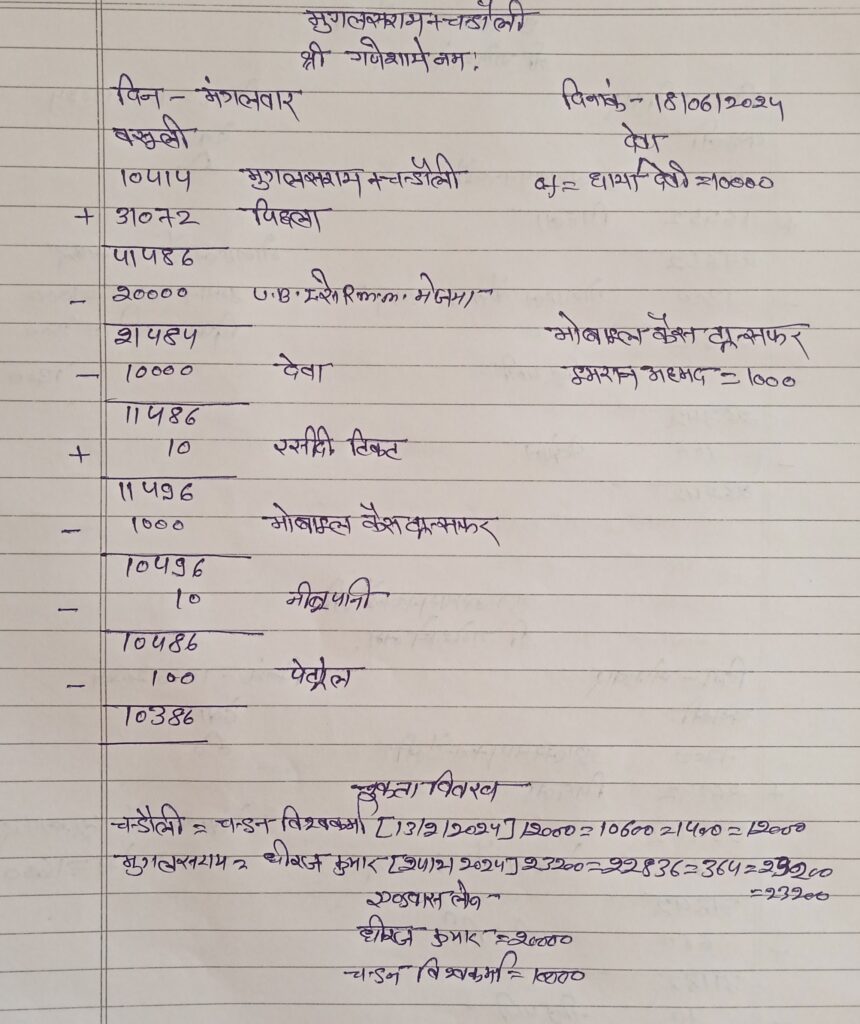 मुगलसराय + चन्डौली
श्री गणेशाय नमः
दिन - मंगलवार दिनांक - 18/06/2024
वसूली देवा
10414 मुगलसराय + चन्डौली देवी = 10000
+ 31072 पिछला
41486
- 20000 U.B.I से R m.m.
21484 मोबाइल कैस ट्रान्सफर
- 10000 देवा इमरान अहमद = 1000
11486
+ 10 रसीदी टिकट
11496
- 1000 मोबाइल कैस ट्रान्सफर
10496
- 10 पानी
10486
- 100 पेट्रोल
10386
चुकता विवरण
चन्डौली = चन्डन विश्वकर्मा [13/2/2024] 12000 = 10600 = 1400 = 12000
मुगलसराय = धीरज कुमार [24/2/2024] 23200 = 22836 = 364 = 23200
= 23200
एडवांस लोन
धीरज कुमार = 20000
चन्डन विश्वकर्मा = 10000